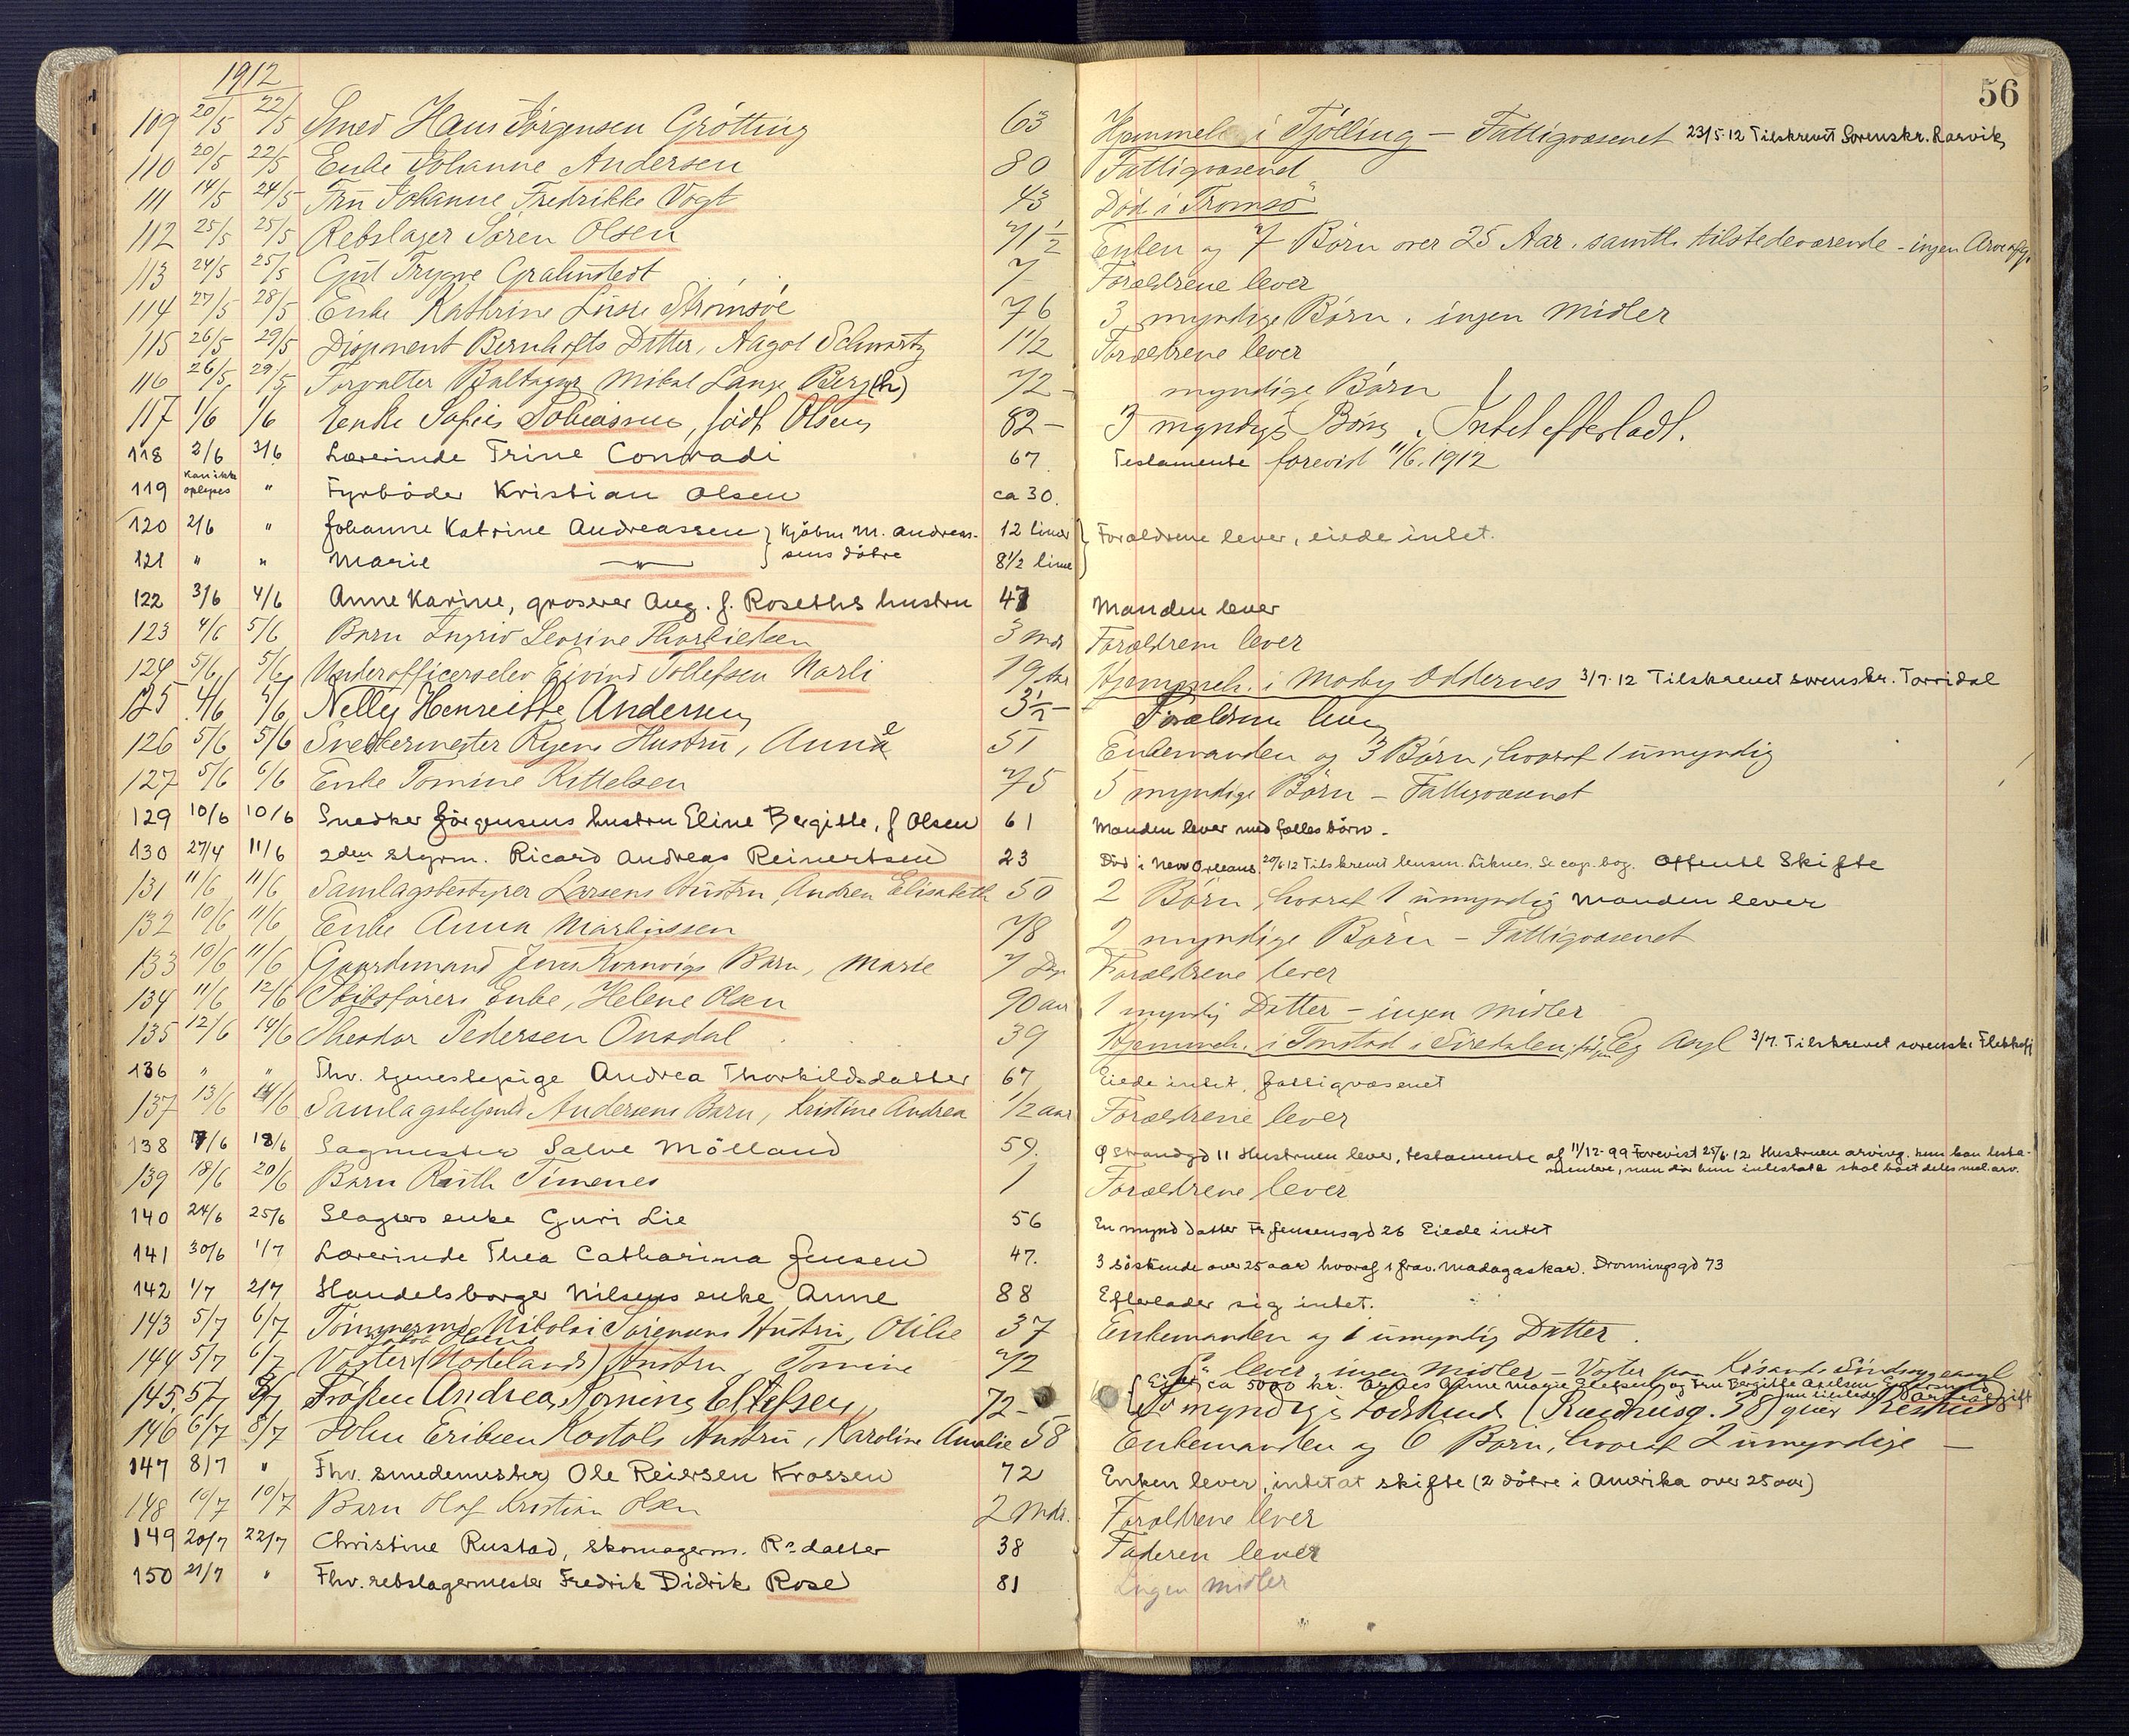 1912
56
109 20/5 22/5 Smed Hans Jörgensen Grötting 63 Hjemmeh i Tjölling – Fattigvæsenet 23/5-12 Tilskrevet Sorenskr. Larvik
110 20/5 22/5 Enke Johanne Andersen 80 Fattigvæsenet
111 14/5 24/5 Fru Johanne Fredrikke Vogt 43 Död i Tromsö
112 25/5 25/5 Rebslager Sören Olsen 71 1/2 Enken og 7 Börn over 25 Aar. samtl. tilstedeværende - ingen Arveafg.
113 24/5 25/5 Gut Trygve Grahnstedt 7 Forældrene lever
114 27/5 28/5 Enke Kathrine Lisse Strømsöe 76 3 myndige Börn. ingen midler
115 26/5 29/5 Disponent Bernhofts Datter, Aagot Schwartz 1 1/2 Forældrene lever
116 26/5 29/5 Forvalter Baltazar Mikal Lange Berg(h) 72 – myndige Börn
117 1/6 1/6 Enke Sofie Tobiassen, född Olsen 82 – 3 myndige Börn. Intet efterladt.
118 2/6 3/6 Lærerinde Trine Conradi 67 Testamente forevist 11/6.1912
119 Kan ikke oplyses " Fyrböder Kristian Olsen ca 30.
120 2/6 " Johanne Katrine Andreassen } Kjöbm M. Andreas- 12 timer } Forældrene lever, eiede intet.
121 " " Marie –"– } sens döbre 8 1/2 time }
122 3/6 4/6 Anne Karine, grosserer Aug. J. Roseths hustru 47 Manden lever
123 4/6 5/6 Barn Ingrid Leorine Thorbiedsen 3 mdr Forældrene lever
124 5/6 5/6 Underofficerselev Eivind Tollefsen Narli 19 Hjemmeh. i Mosby Oddernes 3/7-12 Tilskrevet sorenskr. Torridal
125 4/6 4/6 Nelly Henreitte Andersen 3 1/2 – Forældrene lever
126 5/6 5/6 Snedkermester Ryens Hustru, Anne 51 Enkemanden og 3 Börn, hvoraf 1 umyndig
127 5/6 6/6 Enke Tomine Kittelsen 75 5 myndige Börn – Fattigvæsenet
129 10/6 10/6 Snedker Jörgensens hustru Eline Bergitte, f Olsen 61 Manden lever med fælles börn.
130 27/4 11/6 2den styrm. Ricard Andreas Reinertsen 23 Död i New Orleans. 20/6 12 Tilskrevet lensm. Liknes. Se cop. bog. Offentl Skifte
131 11/6 11/6 Samlagsbestyrer Larsens Hustru, Andrea Elisabeth 50 2 Börn, hvoraf 1 umyndig Manden lever
132 10/6 11/6 Enke Anna Markussen 78 2 myndige Börn – Fattigvæsenet
133 10/6 11/6 Gaardmand Jens Kvanvigs Barn, Marie 7 Dge Forældrene lever
134 11/6 12/6 Skibsförers Enke, Helene Olsen 90 aar 1 myndig Datter – ingen midler
135 12/6 14/6 Theodor Pedersen Ousdal 39 Hjemmeh. i Tonstad i Siredalen, Eg Asyl 3/7. Tilskrevet sorensk. Flekkefj
136 " " Fhv. tjenestepige Andrea Thorkildsdatter 67 Eiede intet, fattigvæsenet
137 13/6 14/6 Samlagsbetjents Andersens Barn, Kristine Andrea 1/2 aar Forældrene lever
138 17/6 18/6 Sagmester Salve Mölland 59. Ö Strandgd 11 Hustruen lever, testamente af 11/12-99 Forevist 25/6-12 Hustruen arving. hun kan testa-
mentere, men dör hun intestatt skal boet deles mel. arv.
139 18/6 20/6 Barn Ruth Timenes 1 Forældrene lever
140 24/6 25/6 Slagters enke Guri Lie 56 En mynd datter Fr. Jensensgd 26 Eiede intet
141 30/6 1/7 Lærerinde Thea Catharina Jensen 47. 3 söskende over 25 aar hvoraf 1 frav. Madagaskar. Dronningsgd 73
142 1/7 2/7 Handelsborger Nilsens enke Anne 88 Efterlader sig intet.
143 5/7 6/7 Tömmermd Nikolai Sörensens Hustru, Otilie 37 Enkemanden og 1 umyndig Datter.
144 5/7 6/7 Vogter (Hodelands) Hustru, Tomine 72 lever, ingen midler – Vogter paa Kr.sands Sindssygeasyl
Eier ca 5000 kr. Anne Marie Ellefsen og fru Bergitte Axelsen
145. 5/7 Fröken Andrea Tomine Ellefsen 72 – myndige Sødskende (Raadhusg. 58) Beskud
146 6/7 8/7 John Eriksen Kostöls Hustru, Karoline Amalie 58 Enkemanden og 6 Börn, hvoraf 2 umyndige –
147 8/7 " Fhv. smedemester Ole Reiersen Krossen 72 Enken lever, intet at skifte (2 döbre i Amerika over 25 aar)
148 10/7 10/7 Barn Olaf Kristian Olsen 2 Mdr. Forældrene lever
149 20/7 22/7 Christine Rustad, skomagerm. Rs datter 38 Faderen lever
150 21/7 " Fhv. rebslagermester Fredrik Didrik Rose 81 Ingen midler